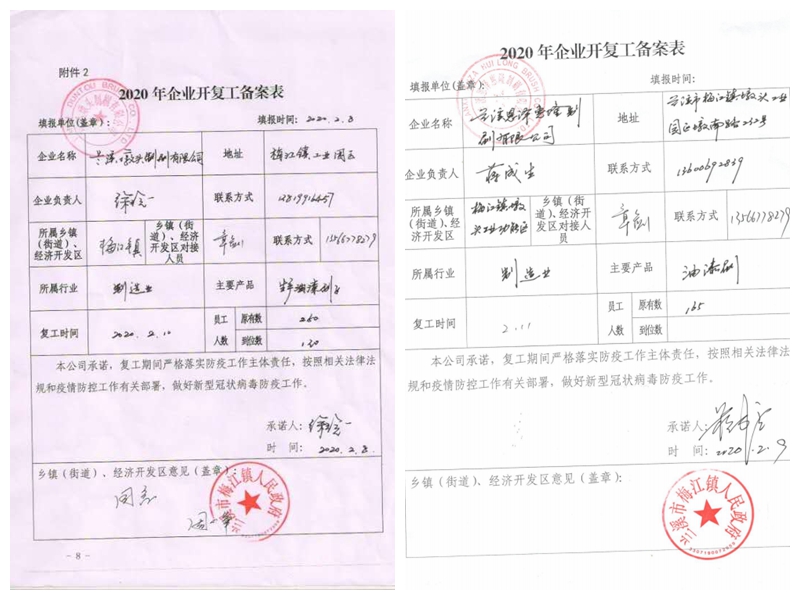 附件2
2020年企业开复工备案表
填报单位(盖章):
填报时间: 2020.2.8
企业名称
兰溪墩头制刷有限公司
地址
梅江镇工业园区
企业负责人
联系方式
所属乡镇
(街道)、
经济开发区
梅江镇
乡镇(街
道)、经济
开发区对接
人员
联系方式
13566778279
所属行业
制造业
主要产品
复工时间
2020.2.10
员工
人数
原有数
260
到位数
130
本公司承诺,复工期间严格落实防疫工作主体责任,按照相关法律法
规和疫情防控工作有关部署,做好新型冠状病毒防疫工作。
承诺人:
时 间: 2020.2.8.
乡镇(街道)、经济开发区意见(盖章):
同意
兰溪市梅江镇人民政府
- 8 -
2020年企业开复工备案表
填报单位(盖章):
填报时间:
企业名称
地址
兰溪市梅江镇墩头工业
园区墩南路232号
企业负责人
蒋成生
联系方式
13600692839
所属乡镇
(街道)、经
济开发区
梅江镇墩
头工业功能区
乡镇(街
道)、经济开
发区对接人
员
联系方式
13566778279
所属行业
制造业
主要产品
油漆刷
复工时间
2.11
员工
人数
原有数
165
到位数
本公司承诺,复工期间严格落实防疫工作主体责任,按照相关法律法
规和疫情防控工作有关部署,做好新型冠状病毒防疫工作。
承诺人:
时 间: 2020.2.9
乡镇(街道)、经济开发区意见(盖章):
兰溪市梅江镇人民政府